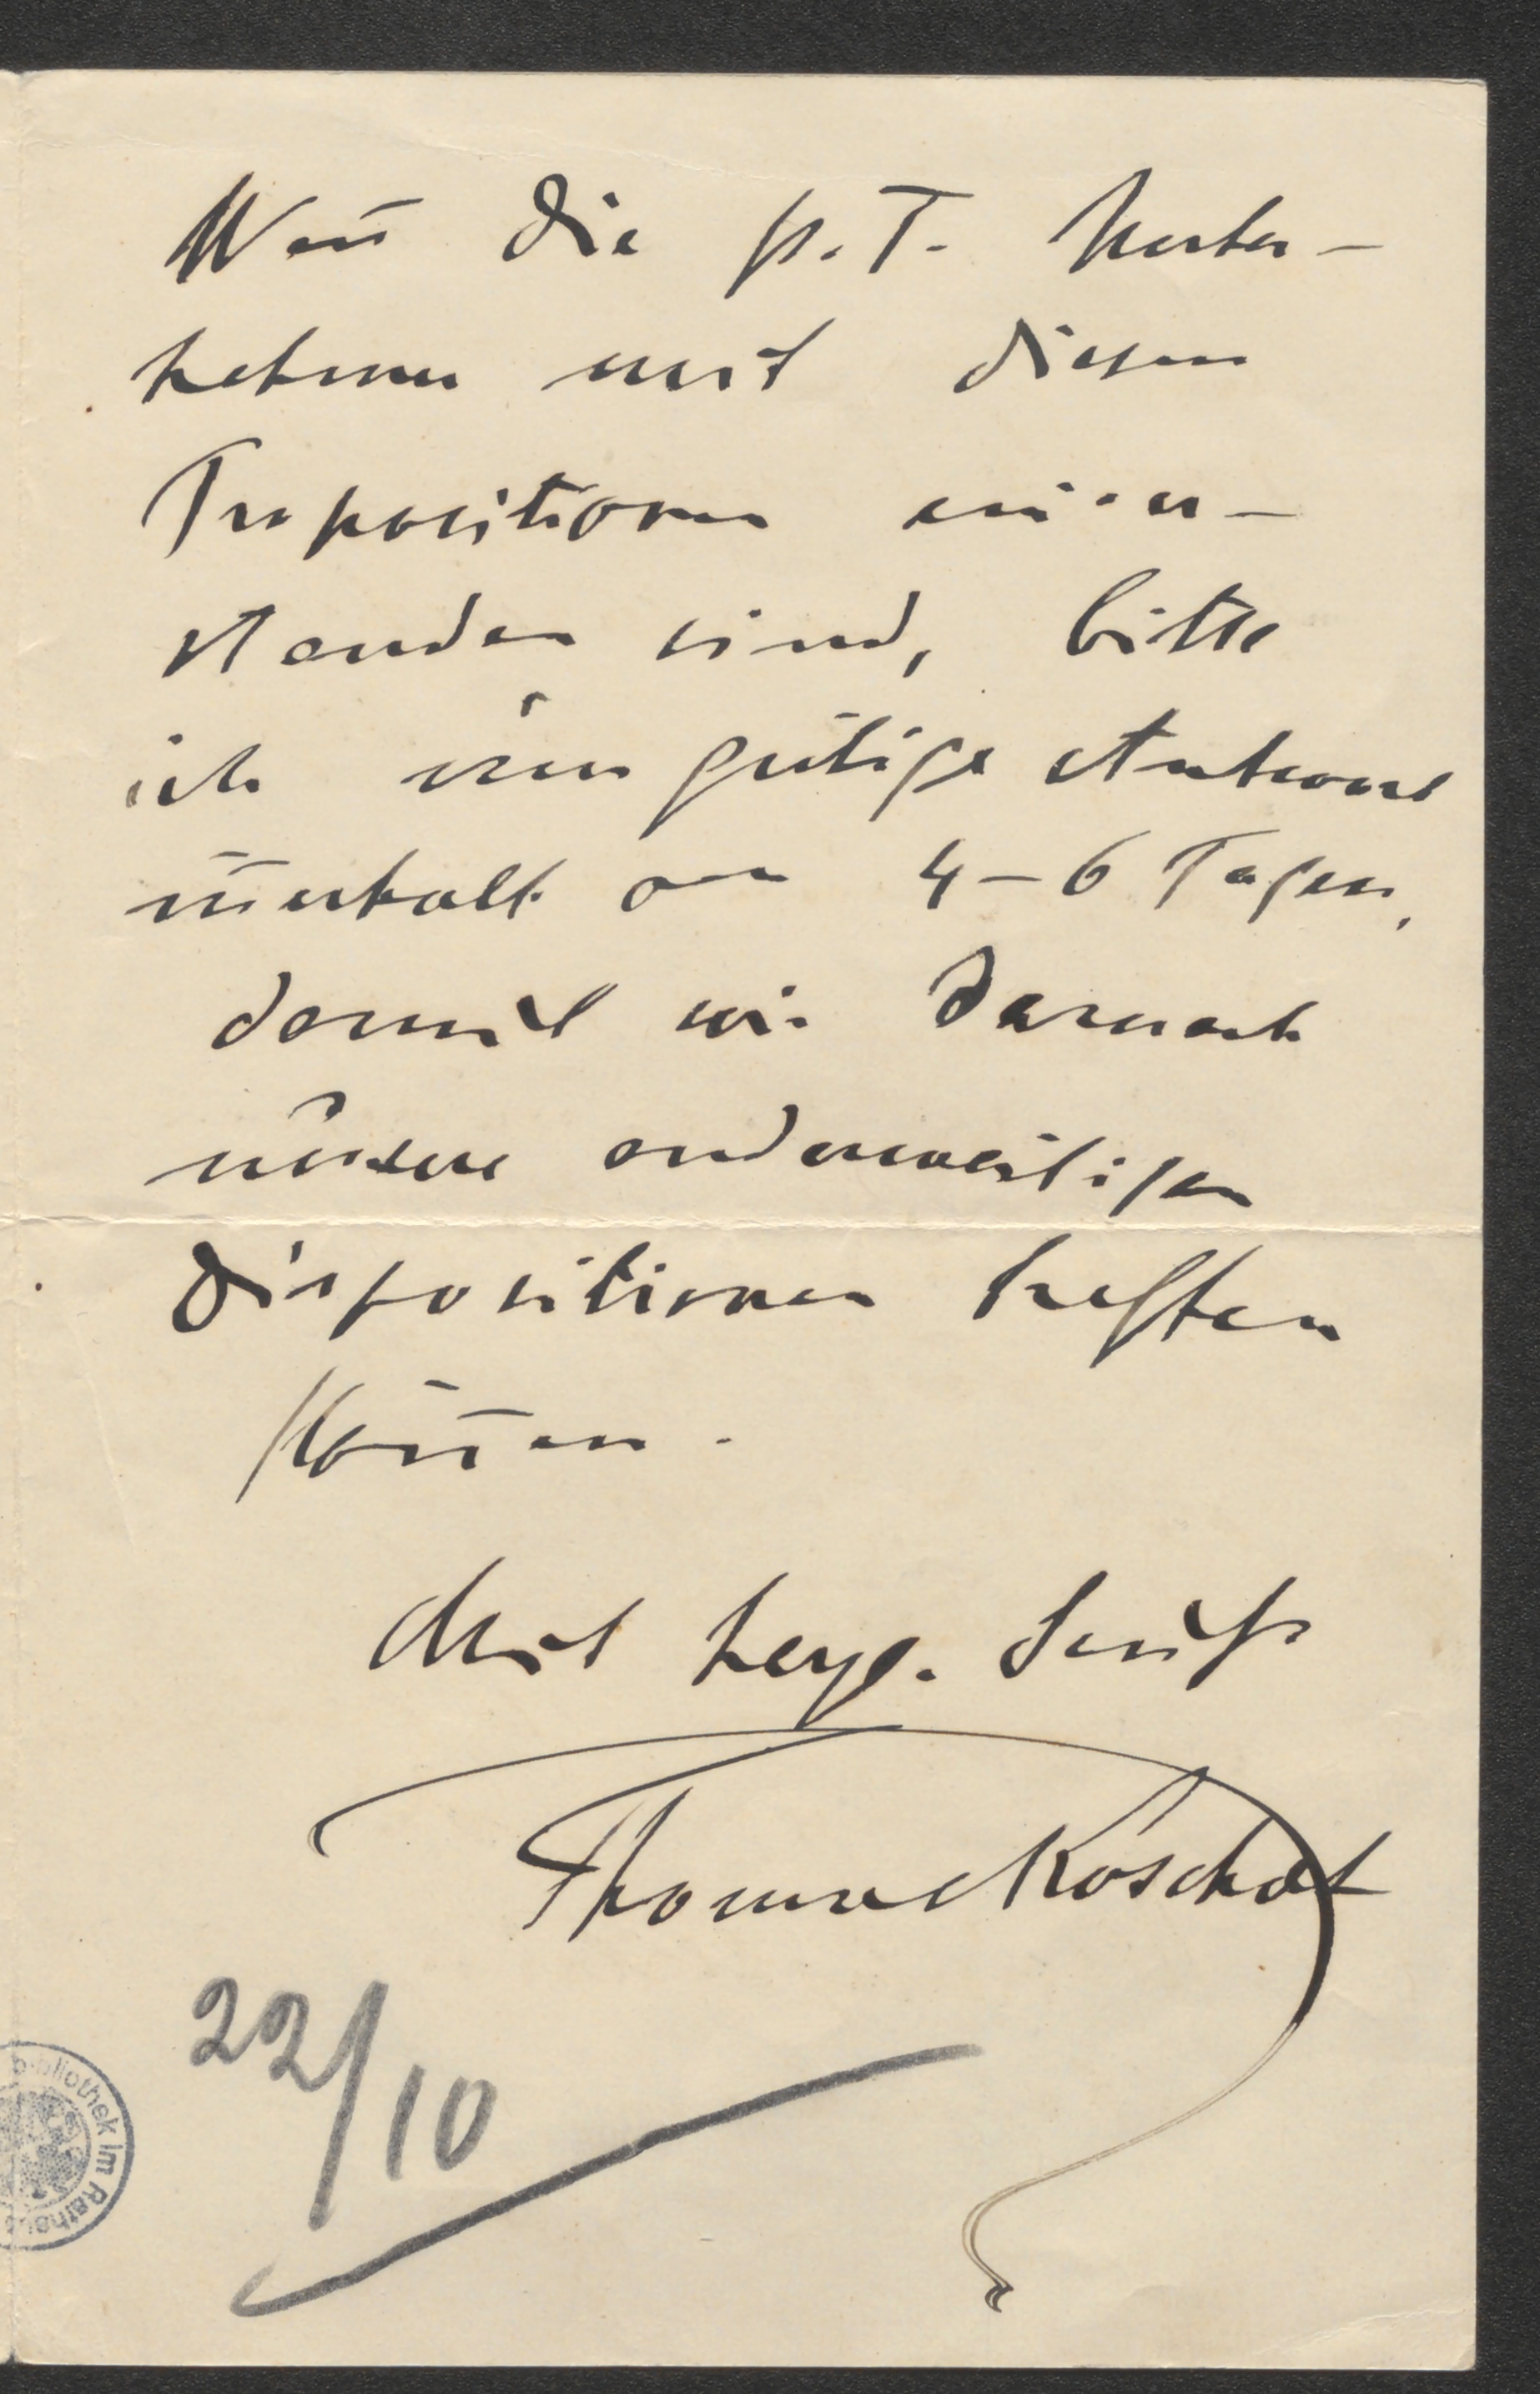 Wen̄ die p. T. Unter-
nehmer mit diesen
Propositionen einver-
standen sind, bitte
ich um gütige Antwort
in̄erhalb von 4-6 Tagen,
damit wir darnach
unsere anderweitigen
Dispositionen treffen
kön̄en.
Mit herzl. Gruß
Thomas Koschat
22/10
bibliothek im Rathaus